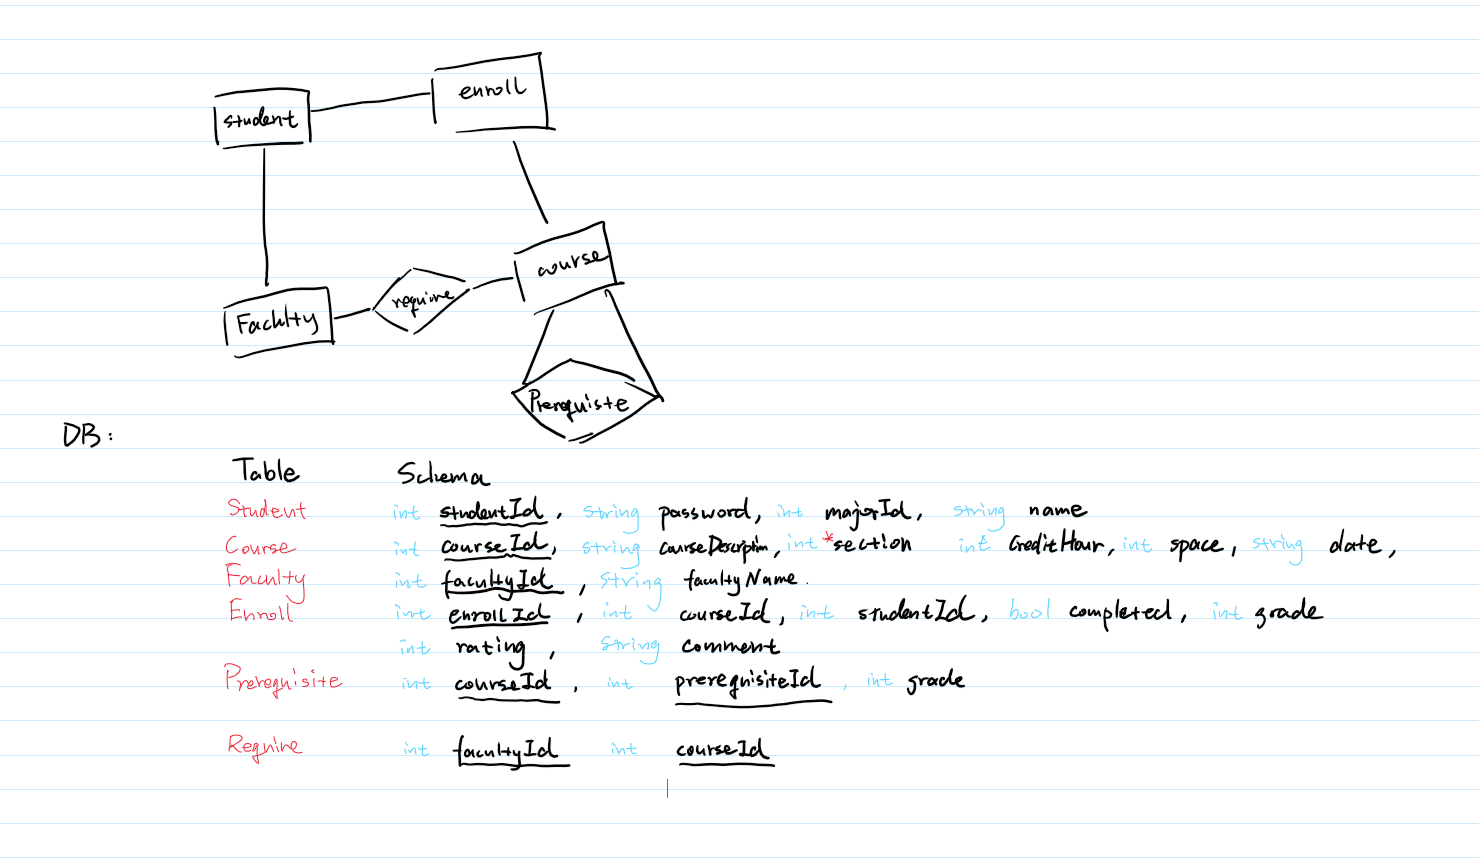 enroll
student
course
require
Faculty
Prerequiste
DB:
Table Schema
Student int studentId, string password, int majorId, string name
Course int courseId, string courseDescription, int *section int CreditHour, int space, string date,
Faculty int facultyId, string facultyName.
Enroll int enrollId, int courseId, int studentId, bool completed, int grade
int rating, string comment
Prerequisite int courseId, int prerequisiteId, int grade
Require int facultyId int courseId